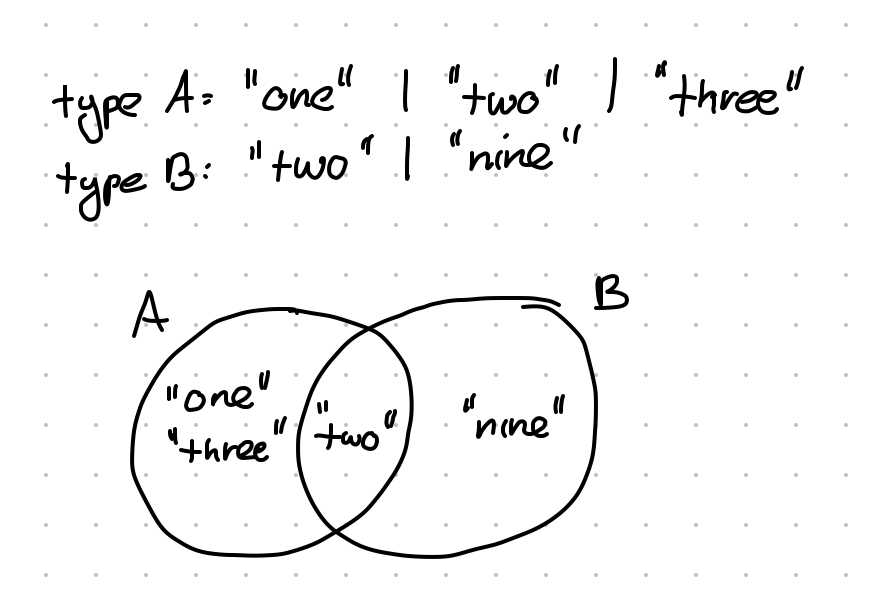 type A= "one" | "two" | "three"
type B: "two" | "nine"
A
B
"one"
"three"
"two"
"nine"